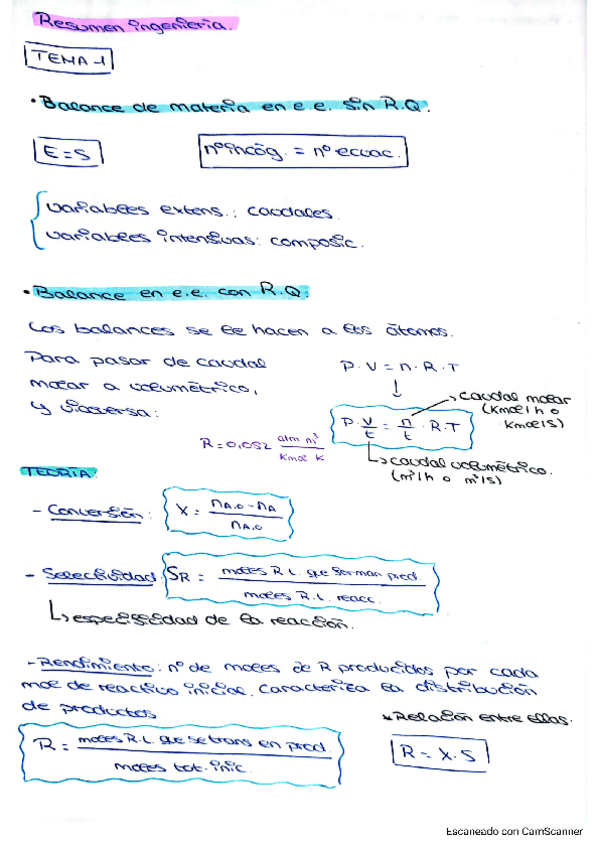 Resumen ingeniería.
TEMA 1
· Balance de materia en e.e. sin R.Q.
E = S
nº incóg. = nº ecuac.
variables extens.: caudales
variables intensivas: composic.
· Balance en e.e. con R.Q:
Los balances se le hacen a los átomos.
Para pasar de caudal
molar a volumétrico,
y viceversa:
P · V = n · R · T
P · V/t = n/t · R · T
caudal molar
(Kmol/h o
Kmol/s)
caudal volumétrico.
(m³/h o m³/s)
R = 0,082 atm m³ / Kmol K
TEORÍA:
- Conversión: X = (nA,0 - nA) / nA,0
- Selectividad: SR = moles R.L. que forman prod. / moles R.L. reacc.
↳ especificidad de la reacción.
- Rendimiento: nº de moles de R producidos por cada
mol de reactivo inicial. Caracteriza la distribución
de productos
* Relación entre ellas.
R = moles R.L. que se trans en prod / moles tot. inic.
R = X · S
Escaneado con CamScanner